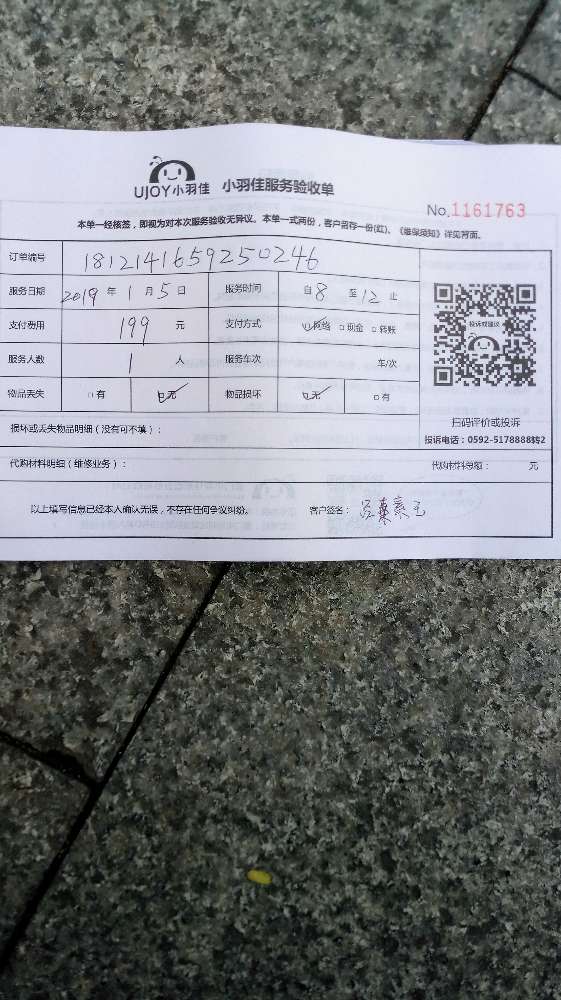 UJOY小羽佳 小羽佳服务验收单
No.1161763
本单一经核签，即视为对本次服务验收无异议。本单一式两份，客户留存一份(红)、《维保须知》详见背面。
订单编号 1812141659250246
服务日期 2019 年 1 月 5 日 服务时间 自 8 至 12 止
支付费用 199 元 支付方式 网络 现金 转账
投诉或建议
服务人数 1 人 服务车次 车/次
物品丢失 有 无 物品损坏 无 有
扫码评价或投诉
损坏或丢失物品明细（没有可不填）：
投诉电话：0592-5178888转2
代购材料明细（维修业务）： 代购材料总额： 元
以上填写信息已经本人确认无误，不存在任何争议纠纷。 客户签名：